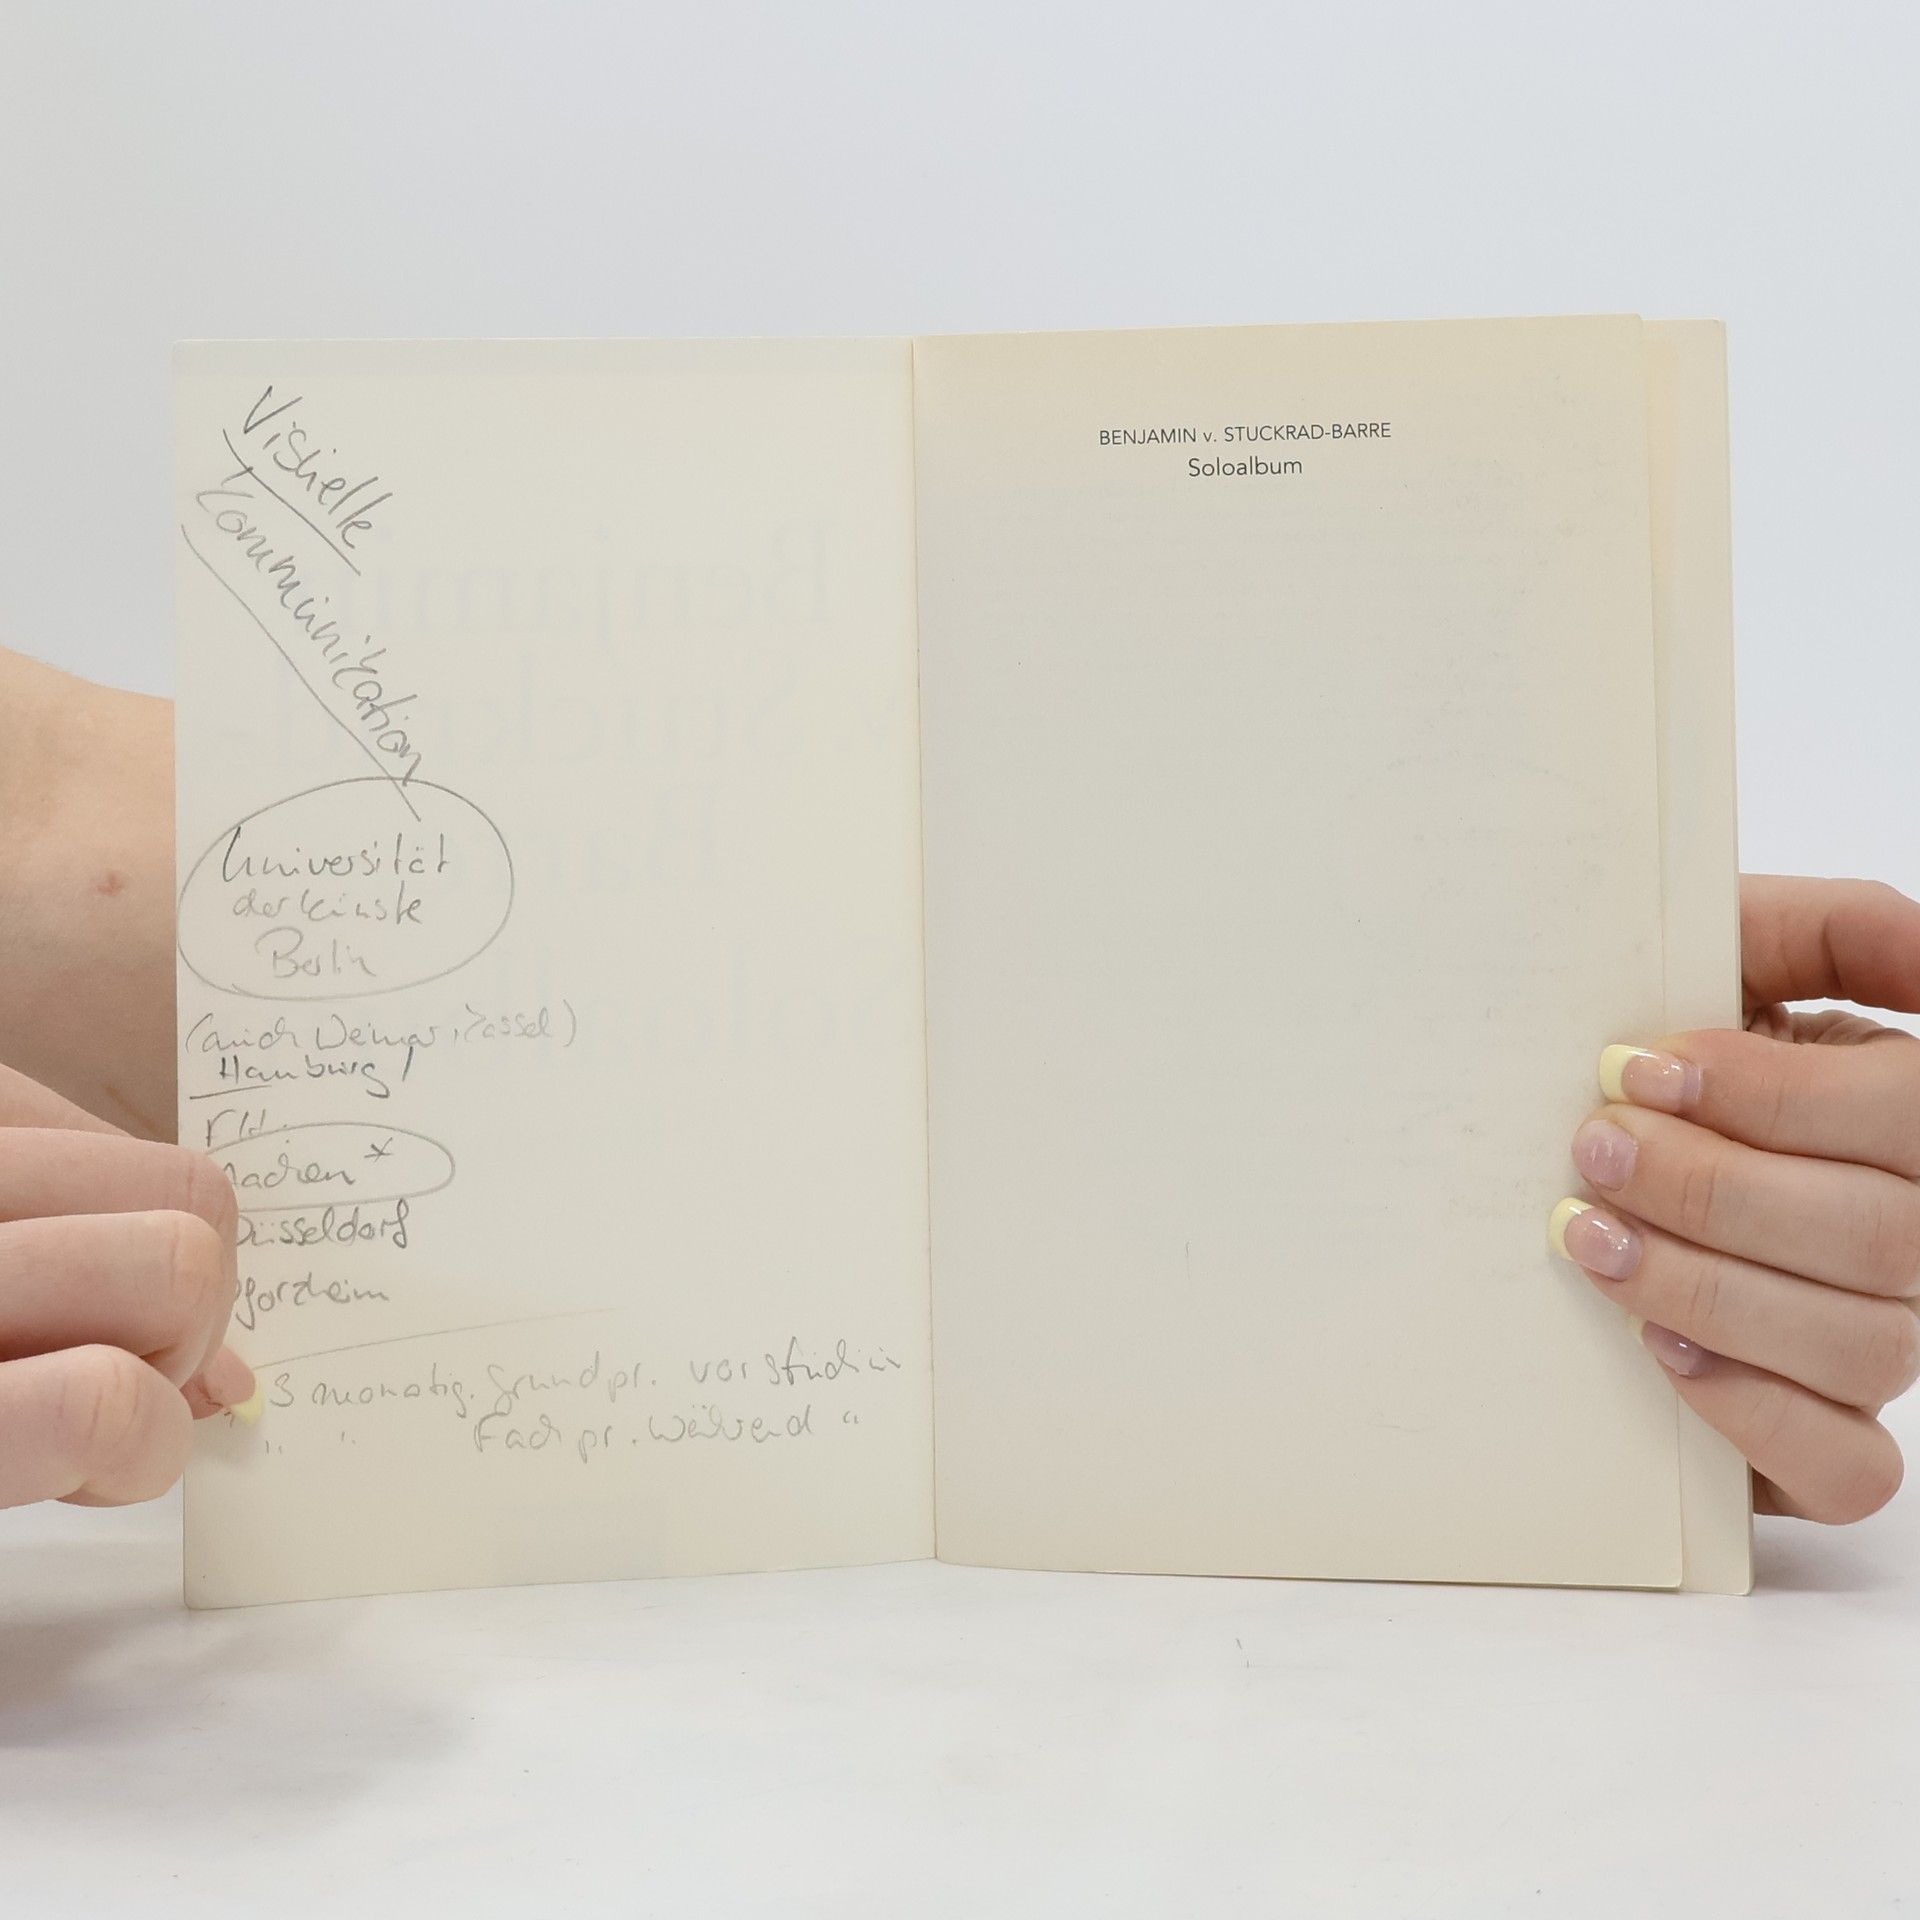 Visuelle
Kommunikation
Universität
der Künste
Berlin
(auch Weimar, Kassel)
Hamburg!
FH:
Aachen *
Düsseldorf
Pforzheim
3 monatig. Grundpr. vor Studium
" " Fachpr. während "
BENJAMIN v. STUCKRAD-BARRE
Soloalbum